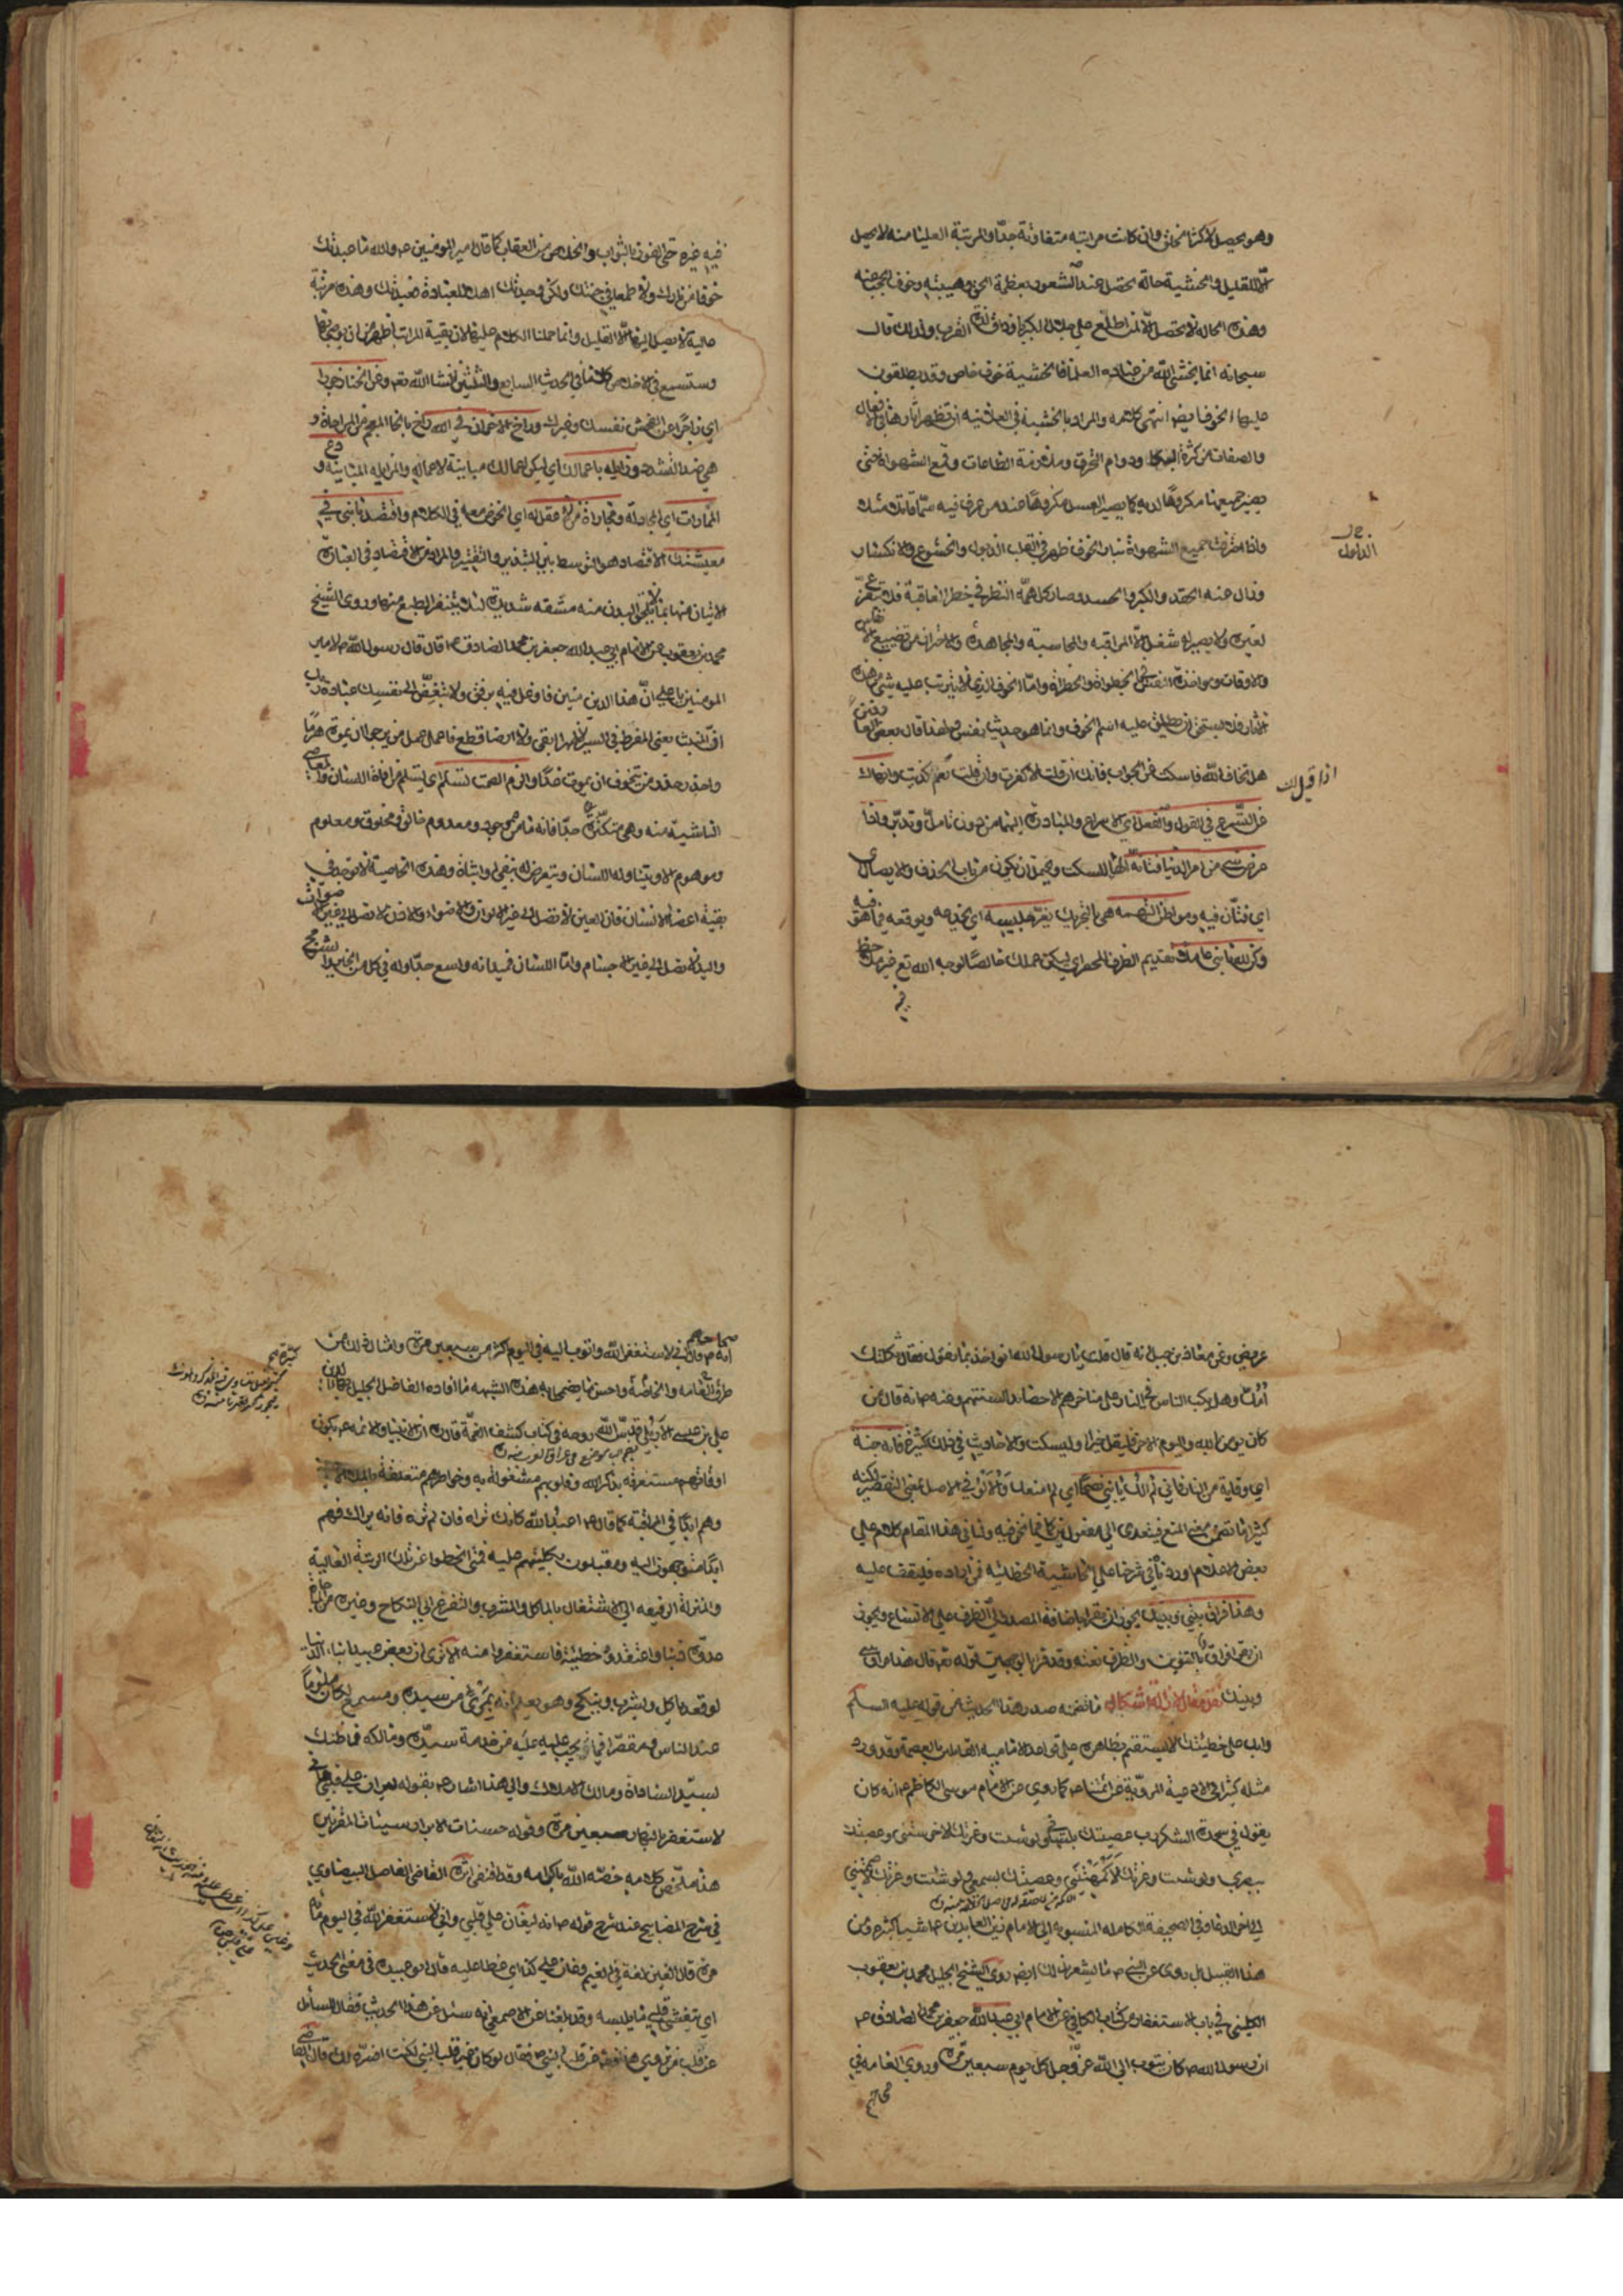 وهو يحصل لاكثر الخلق وان كانت مراتبه متفاوتة جدا والمرتبة العليا منه لا يحصل
الا للقليل والخشية حالة تحصل عند الشعور بعظمة الحق وهيبته وخوف الحجب عنه
وهذه الحالة لا تحصل الا لمن اطلع على جلال الكبرياء وذاق لذة القرب ولذلك قال
سبحانه انما يخشى الله من عباده العلماء فالخشية خوف خاص وقد يطلقون
عليها الخوف ايضا انتهى كلامه والمراد بالخشية في العلانية ان تظهر اثارها في الافعال
والصفات من كثرة البكاء ودوام التحرق وملازمة الطاعات وقمع الشهوات حتى
يصير جميعها مكروها لديه كما يصير العسل مكروها عند من عرف فيه سما قاتلا مثلا
واذا احترقت جميع الشهوات بنار الخوف ظهر في القلب الذبول والخشوع والانكسار
وزال عنه الحقد والكبر والحسد وصار كل همه النظر في خطر العاقبة فلا يتفرغ
لغيره ولا يصير له شغل الا المراقبة والمحاسبة والمجاهدة والاحتراز من تضييع الانفاس
والاوقات ومواخذة النفس في الخطوات والخطرات واما الخوف الذي لا يترتب عليه شيء من هذه
الاثار فلا يستحق ان يطلق عليه اسم الخوف وانما هو حديث نفس ولهذا قال بعض العارفين
اذا قيل لك
هل تخاف الله فاسكت عن الجواب فانك ان قلت لا كفرت وان قلت نعم كذبت وانهاك
عن التسرع في القول والفعل اي الاسراع والمبادرة اليهما من دون تامل وتدبر واذا
عرض شيء من امر الدنيا فتانه الهاء للسكت ويحتمل ان يكون من باب الحذف والايصال
اي فتان فيه ومواطن التهمه هي بالتحريك يغر جليسه اي يخدعه ويوقعه فيما هو فيه
وكن لله يا بني عاملا تقديم الظرف للحصر اي ليكن عملك خالصا لوجه الله تع غير ملاحظ
فيه
فيه غيره حتى الفوز بالثواب والخلاص من العقاب كما قال امير المومنين ع والله ما عبدتك
خوفا من نارك ولا طمعا في جنتك ولكن وجدتك اهلا للعبادة فعبدتك وهذه مرتبة
عالية لا يصل اليها الا القليل وانما حملنا الكلام عليها لان بقية المراتب اظهر من ان يوصى بها
وستسمع في الاخلاص كلاما في الحديث السابع والثلثين انشا الله تعم وعن الخنا زجورا
اي زاجرا عن الفحش نفسك وغيرك وواخ الاخوان في الله
هي ضد التشدد وزايله باعمالك اي ليكن اعمالك مباينة لاعماله والمزايله المباينه ودع
المماراة اي المجادلة ومجاراة من لا عقل له اي الخوض معه في الكلام واقتصد يا بني في
معيشتك الاقتصاد هو التوسط بين التبذير والتقتير والمراد من الاقتصاد في العبادة
الاتيان منها بما لا يلحق البدن منه مشقه شديدة لئلا يتنفر الطبع منها وروى الشيخ
محمد بن يعقوب عن الامام ابي عبد الله جعفر بن محمد الصادق ع قال قال رسول الله ص لامير
المومنين يا علي ان هذا الدين متين فاوغل فيه برفق ولا تبغض الى نفسك عبادة ربك
ان المنبت يعني المفرط في السير لا ظهرا ابقى ولا ارضا قطع فاعمل عمل من يرجو ان يموت هرما
واحذر حذر من يتخوف ان يموت غدا والزم الصمت تسلم اي لتسلم من افات اللسان والمعاصي
الناشية منه وهي متكثرة جدا فانه ما من موجود ومعدوم خالق ومخلوق ومعلوم
وموهوم الا ويتناوله اللسان ويتعرض له بنفي او اثبات وهذه الخاصية لا توجد في
بقية اعضاء الانسان فان العين لا تصل الى غير الالوان والاضواء والاذن لا تصل الى غير الاصوات
واليد لا تصل الى غير الاجسام واما اللسان فميدانه واسع جدا وله في كل من الخير والشر مجر
عريض وعن معاذ بن جبل انه قال قلت يا رسول الله انواخذ بما نقول فقال ثكلتك
امك وهل يكب الناس في النار على مناخرهم الا حصائد السنتهم وعنه ص انه قال من
كان يومن بالله واليوم الاخر فليقل خيرا او ليسكت والاحاديث في ذلك كثيرة فانه جنة
اي وقاية من النار فاني لم الك يا بني نصحا اي لم امنعك والالو في الاصل بمعنى التقصير لكنه
كثيرا ما تضمن معنى المنع فيتعدى الى مفعولين كما فيما نحن فيه ولنا في هذا المقام كلام على
بعض الاعلام اوردناه في شرحنا على الحاشية الخطائيه فمن اراده فليقف عليه
وهذا فراق بيني وبينك يجوز ان يقرا باضافة المصدر الى الظرف على الاتساع ويجوز
ان يقرا فراق بالتنوين والظرف نعته وقد قرئ بالوجهين قوله تعم قال هذا فراق بيني
وبينك ما تضمنه صدر هذا الحديث من قوله عليه السلم
وابك على خطيئتك لا يستقيم بظاهره على قواعد الاماميه القائلين بالعصمة وقد ورد
مثله كثيرا في الادعية المروية عن ائمتنا ع كما روي عن الامام موسى الكاظم ع انه كان
يقول في سجدة الشكر رب عصيتك بلساني ولو شئت وعزتك لاخرستني وعصيتك
ببصري ولو شئت وعزتك لاكمهتني وعصيتك بسمعي ولو شئت وعزتك لاصممتني
الى اخر الدعا وفي الصحيفة الكاملة المنسوبة الى الامام زين العابدين ع اشيا كثيره من
هذا القبيل بل روى عن النبي ص ما يشعر بذلك ايضا روى الشيخ الجليل محمد بن يعقوب
الكليني في باب الاستغفار من كتاب الكافي عن الامام ابي عبد الله جعفر بن محمد الصادق ع
ان رسول الله ص كان يتوب الى الله عز وجل كل يوم سبعين مرة وروى العامة في
صحاحهم
صحاحهم
انه ص قال اني لاستغفر الله واتوب اليه في اليوم اكثر من سبعين مرة وامثال ذلك من
طرق العامة والخاصة واحسن ما يضمحل به هذه الشبهة ما افاده الفاضل الجليل بهاء الدين
علي بن عيسى الاربلي قدس الله روحه في كتاب كشف الغمة قال ان الانبيا والائمة ع يكون
اوقاتهم مستغرقه بذكر الله وقلوبهم مشغولة به وخواطرهم متعلقة بالملا الاعلى
وهم ابدا في المراقبة كما قال ع اعبد الله كانك تراه فان لم تره فانه يراك فهم
ابدا متوجهون اليه ومقبلون بكليتهم عليه فمتى انحطوا عن تلك الرتبة العالية
والمنزلة الرفيعه الى الاشتغال بالماكل والمشرب والتفرغ الى النكاح وغيره من المباحات
عدوه ذنبا واعتقدوه خطيئة فاستغفروا منه الا ترى ان بعض عبيد ابناء الدنيا
لو قعد ياكل ويشرب وينكح وهو يعلم انه بمرأى من سيده ومسمع لكان ملوما
عند الناس ومقصرا فيما يجب عليه من خدمة سيده ومالكه فما ظنك
بسيد السادات ومالك الاملاك والى هذا اشار ص بقوله انه ليران على قلبي واني
لاستغفر بالنهار سبعين مرة وقوله حسنات الابرار سيئات المقربين
هذا ملخص كلامه خصه الله باكرامه وقد اقتفى اثره القاضي الفاضل البيضاوي
في شرح المصابيح عند شرح قوله ص انه ليغان على قلبي واني لاستغفر الله في اليوم مائة
مرة قال الغين لغة في الغيم وغان على كذا اي غطا عليه قال ابو عبيدة في معنى الحديث
اي يتغشى قلبي ما يلبسه وقد بلغنا عن الاصمعي انه سئل عن هذا الحديث فقال للسائل
عن قلب من تروي هذا فقال عن قلب النبي ص فقال لو كان عن غير قلب النبي لكنت افسره لك قال القاضي